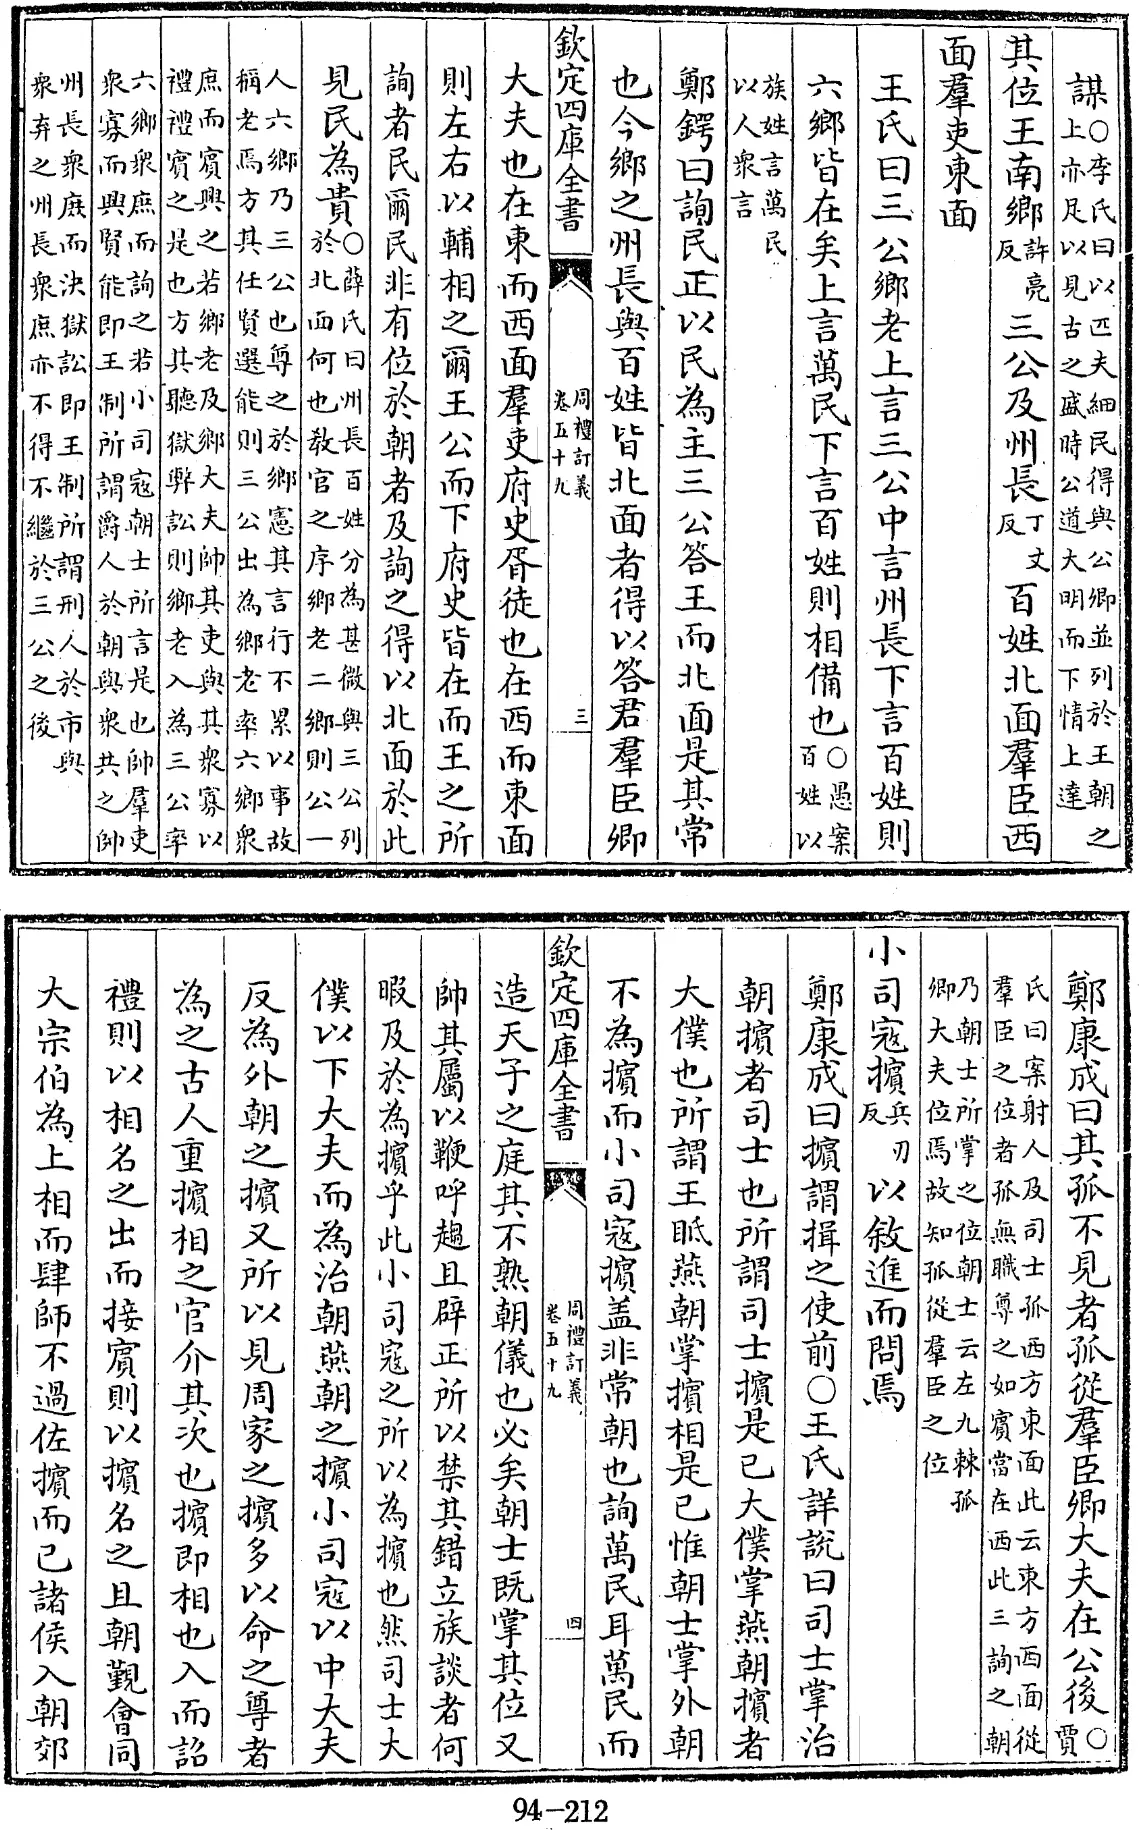 謀○李氏曰以匹夫細民得與公卿並列於王朝之
上亦足以見古之盛時公道大明而下情上達
其位王南鄉許亮反三公及州長丁丈反百姓北面羣臣西
面羣吏東面
王氏曰三公鄉老上言三公中言州長下言百姓則
六鄉皆在矣上言萬民下言百姓則相備也○愚案百姓以
族姓言萬民
以人衆言
鄭鍔曰詢民正以民為主三公答王而北面是其常
也今鄉之州長與百姓皆北面者得以答君羣臣卿
欽定四庫全書
周禮訂義
卷五十九
三
大夫也在東而西面羣吏府史胥徒也在西而東面
則左右以輔相之爾王公而下府史皆在而王之所
詢者民爾民非有位於朝者及詢之得以北面於此
見民為貴○薛氏曰州長百姓分為甚微與三公列
於北面何也教官之序鄉老二鄉則公一
人六鄉乃三公也尊之於鄉憲其言行不累以事故
稱老焉方其任賢選能則三公出為鄉老率六鄉衆
庶而賓興之若鄉老及鄉大夫帥其吏與其衆寡以
禮禮賓之是也方其聽獄弊訟則鄉老入為三公率
六鄉衆庶而詢之若小司寇朝士所言是也帥羣吏
衆寡而興賢能即王制所謂爵人於朝與衆共之帥
州長衆庶而決獄訟即王制所謂刑人於市與
衆弃之州長衆庶亦不得不繼於三公之後
鄭康成曰其孤不見者孤從羣臣卿大夫在公後○賈
氏曰案射人及司士孤西方東面此云東方西面從
羣臣之位者孤無職尊之如賓當在西此三詢之朝
乃朝士所掌之位朝士云左九棘孤
卿大夫位焉故知孤從羣臣之位
小司寇擯兵刃反以敘進而問焉
鄭康成曰擯謂揖之使前○王氏詳說曰司士掌治
朝擯者司士也所謂司士擯是已大僕掌燕朝擯者
大僕也所謂王眡燕朝掌擯相是已惟朝士掌外朝
不為擯而小司寇擯盖非常朝也詢萬民耳萬民而
欽定四庫全書
周禮訂義
卷五十九
四
造天子之庭其不熟朝儀也必矣朝士既掌其位又
帥其屬以鞭呼趨且辟正所以禁其錯立族談者何
暇及於為擯乎此小司寇之所以為擯也然司士大
僕以下大夫而為治朝燕朝之擯小司寇以中大夫
反為外朝之擯又所以見周家之擯多以命之尊者
為之古人重擯相之官介其次也擯即相也入而詔
禮則以相名之出而接賓則以擯名之且朝覲會同
大宗伯為上相而肆師不過佐擯而已諸侯入朝郊
94-212